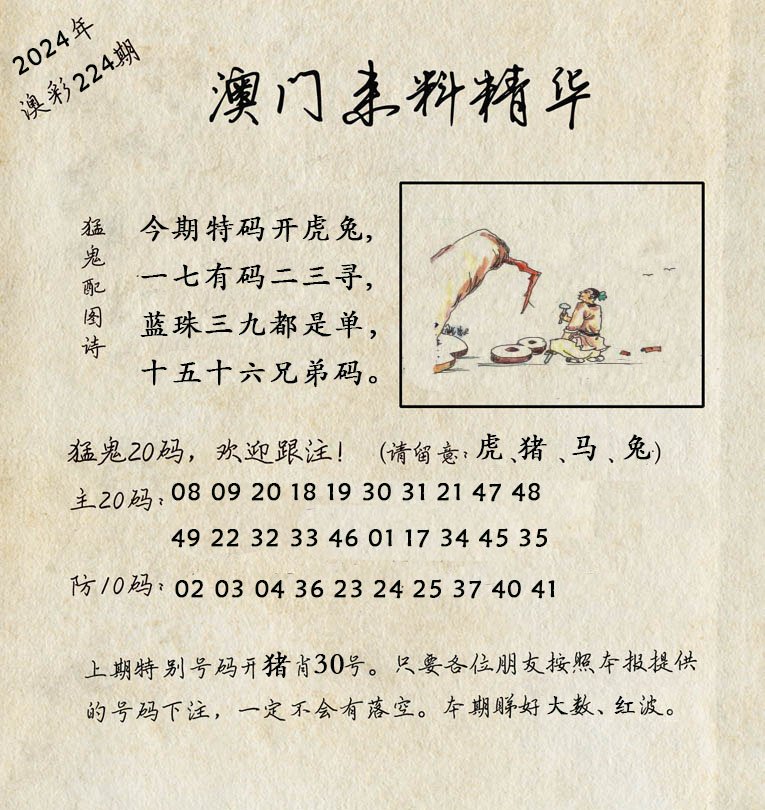 2024年
澳彩224期
澳门来料精华
猛鬼配图诗
今期特码开虎兔，
一七有码二三寻，
蓝珠三九都是单，
十五十六兄弟码。
猛鬼20码，欢迎跟注！（请留意：虎、猪、马、兔）
主20码：08 09 20 18 19 30 31 21 47 48
49 22 32 33 46 01 17 34 45 35
防10码：02 03 04 36 23 24 25 37 40 41
上期特别号码开猪肖30号。只要各位朋友按照本报提供
的号码下注，一定不会有落空。本期睇好大数、红波。